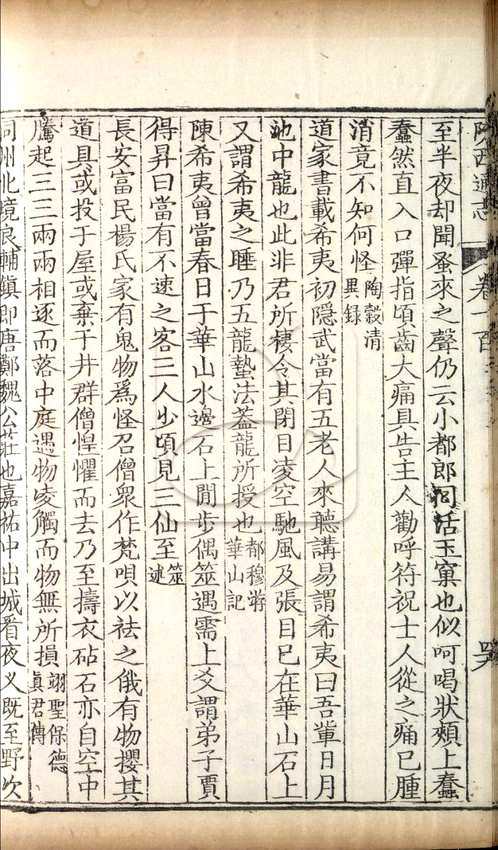 陝西通志
卷一百
至半夜却聞蚤來之聲仍云小都郎回活玉窠也似呵喝狀頰上蠢
蠢然直入口彈指頃齒大痛具告主人勸呼符祝士人從之痛已腫
消竟不知何怪陶穀清異錄
道家書載希夷初隱武當有五老人來聽講易謂希夷曰吾輩日月
池中龍也此非君所棲令其閉目凌空馭風及張目已在華山石上
又謂希夷之睡乃五龍蟄法葢龍所授也都穆游華山記
陳希夷曾當春日于華山水邊石上閒步偶筮遇需上爻謂弟子賈
得昇曰當有不速之客三人少頃見三仙至筮述
長安富民楊氏家有鬼物爲怪召僧衆作梵唄以祛之俄有物攖其
道具或投于屋或棄于井群僧惶懼而去乃至擣衣砧石亦自空中
騰起三三兩兩相逐而落中庭遇物凌觸而物無所損翊聖保德真君傳
同州北境良輔鎮即唐鄭魏公莊也嘉祐中出城看夜乂既至野次